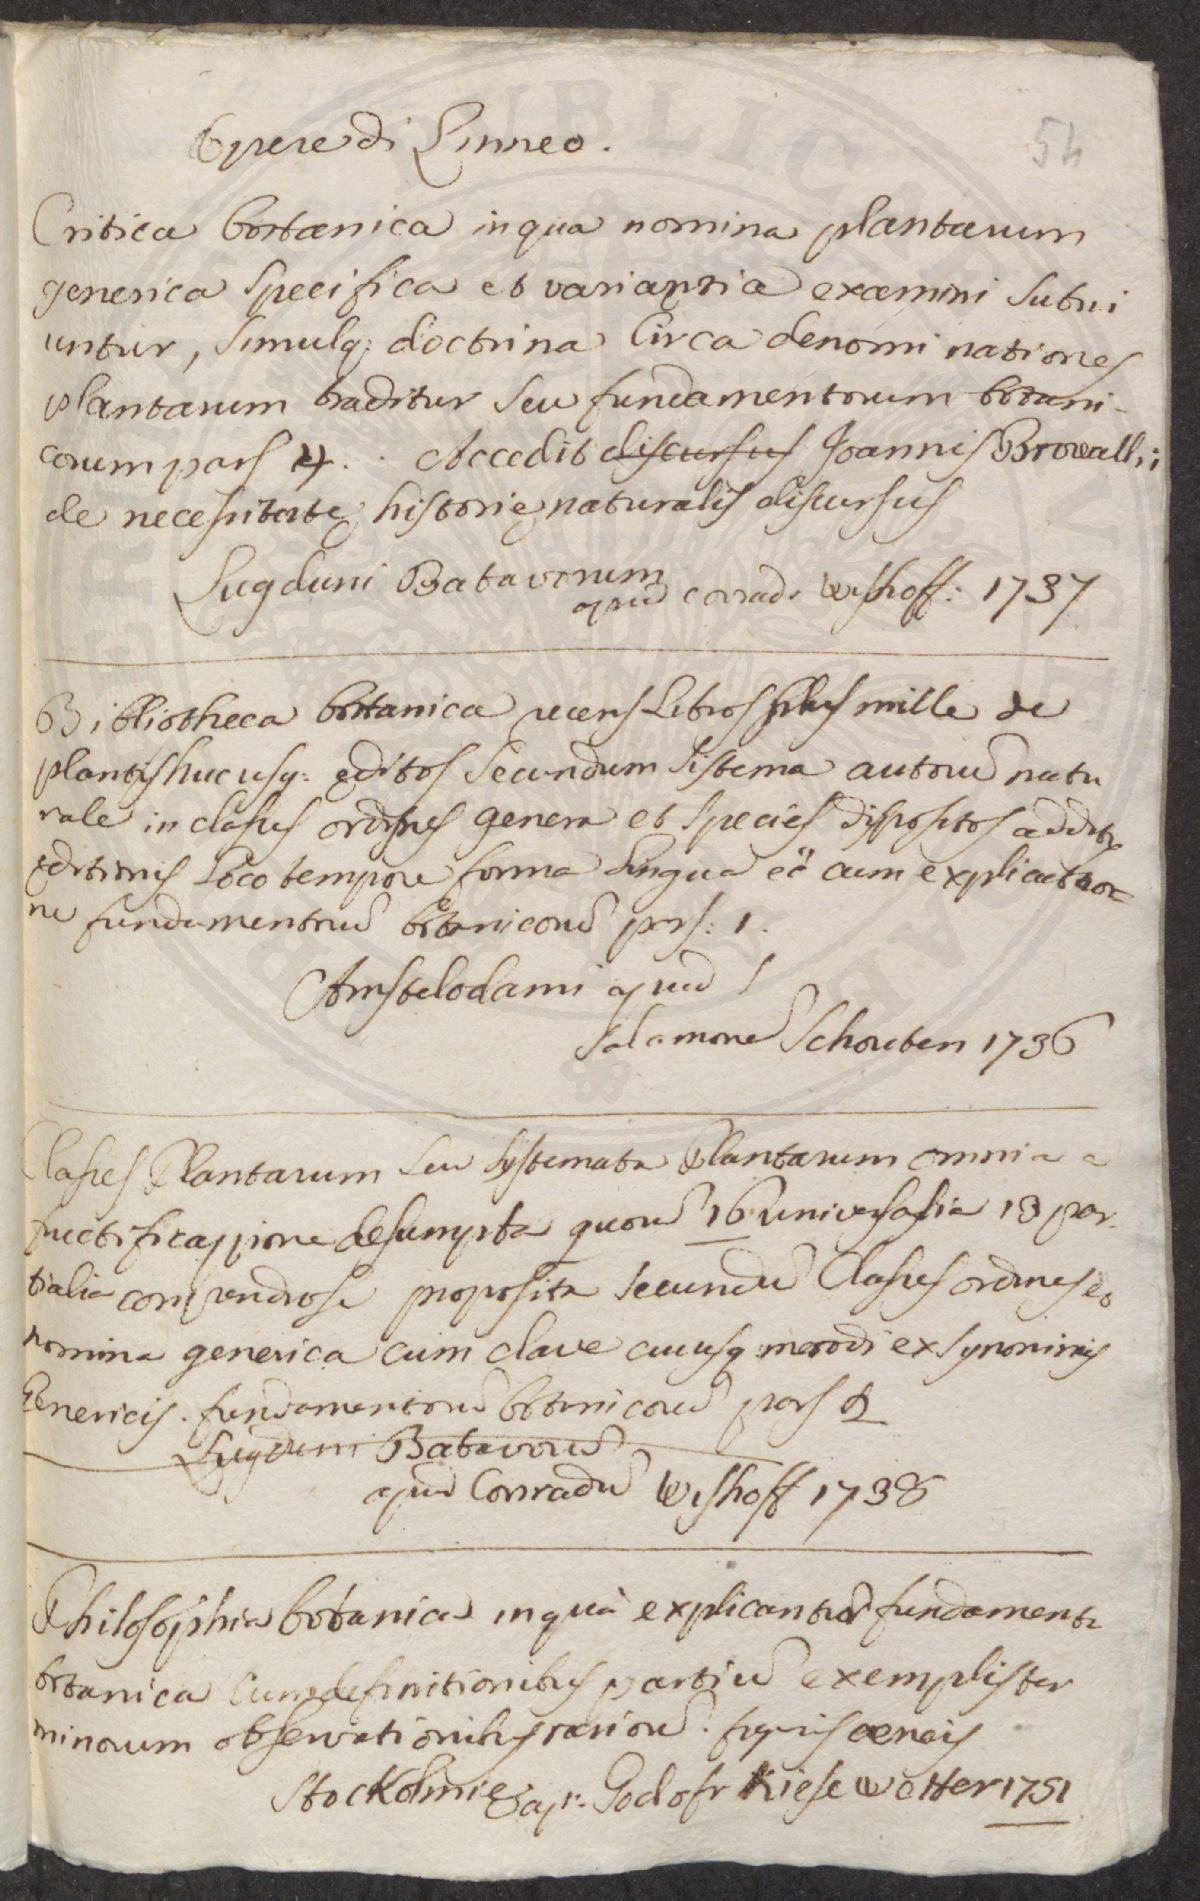 54
Opere di Linneo.
Critica botanica in qua nomina plantarum
generica specifica et variantia examini subui
untur, simulq: doctrina circa denominationes
plantarum traditur seu fundamentorum botani-
corum pars 4. . Accedit discursus Joannis Browallii
de necessitate historię naturalis discursus
Lugduni Batavorum
apud conrad. Wishoff: 1737
Bibliotheca botanica recens Libros plus mille de
plantis huc usq: ęditos secundum sistema autorū natu
rale in classes ordines genera et species dispositos additis
ęditionis loco tempore forma lingua ec̃ cum explicatio=
ne fundamentorū botanicorū pars: 1.
Amstelodami apud S
Salamonē Schouten 1736
Classes Plantarum seu systemata Plantarum omnia a
fructificazione desumpta quorū 16 universalia 13 par-
tialia compendiose proposita secundū Classes ordines et
nomina generica cum clave cuiusq: metodi ex synonimis
Genericis. fundamentorū botanicorū pars 2
Lugduni Batavorū
apud Conradū Wishoff 1738
Philosophia botanica in qua explicantur fundamenta
botanica cum definitionibus partiū exemplis ter
minorum observationibus rariorū. figuris aeneis
Stockolmię ap: Godofr Kiesewetter 1751
PUBLICA